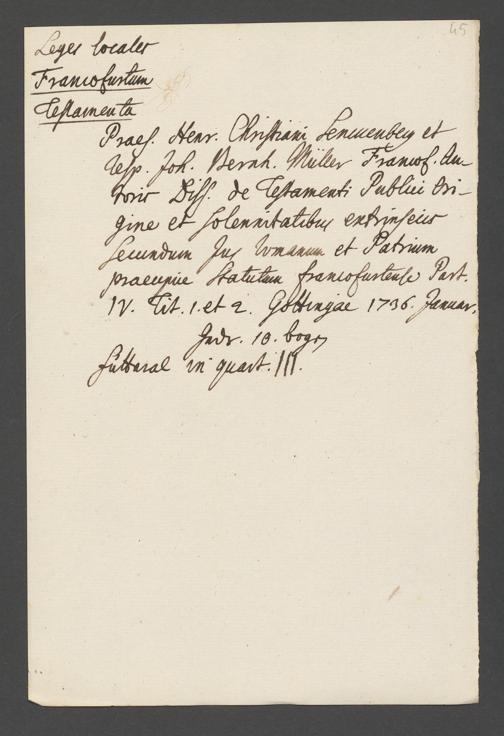 45
Leges locales
Francofurtum
Testamenta
Praes. Henr. Christiani Senckenberg et
Resp. Joh. Bernh. Müller Francof. Au-
toris Diss. de Testamenti Publici Ori-
gine et solennitatibus extrinsecis
secundum Jus Romanum et Patrium
praecipue Statutum francofurtense Part.
IV. Tit. 1. et 2. Göttingae 1736. Januar.
10. bogen
in quart. III.